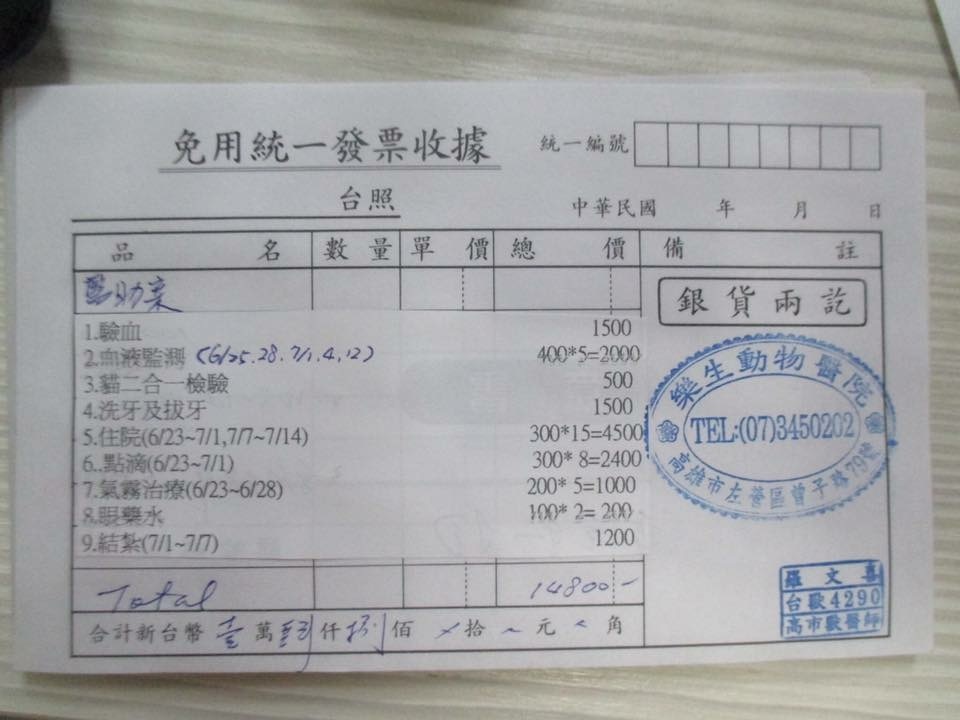 免用統一發票收據
統一編號
台照
中華民國 年 月 日
品名 數量 單價 總價 備註
助
銀貨兩訖
1.驗血 1500
2.血液監測 (6/25.28.7/1.4.12) 400*5=2000
3.貓二合一檢驗 500
4.洗牙及拔牙 1500
5.住院(6/23~7/1,7/7~7/14) 300*15=4500
6..點滴(6/23~7/1) 300* 8=2400
7.氣霧治療(6/23~6/28) 200* 5=1000
8.眼藥水 100* 2= 200
9.結紮(7/1~7/7) 1200
樂生動物醫院
TEL:(07)3450202
高雄市左營區曾子路79號
Total 14800-
合計新台幣 壹 萬 肆 仟 捌 佰 拾 元 角
羅文喜
台獸4290
高市獸醫師